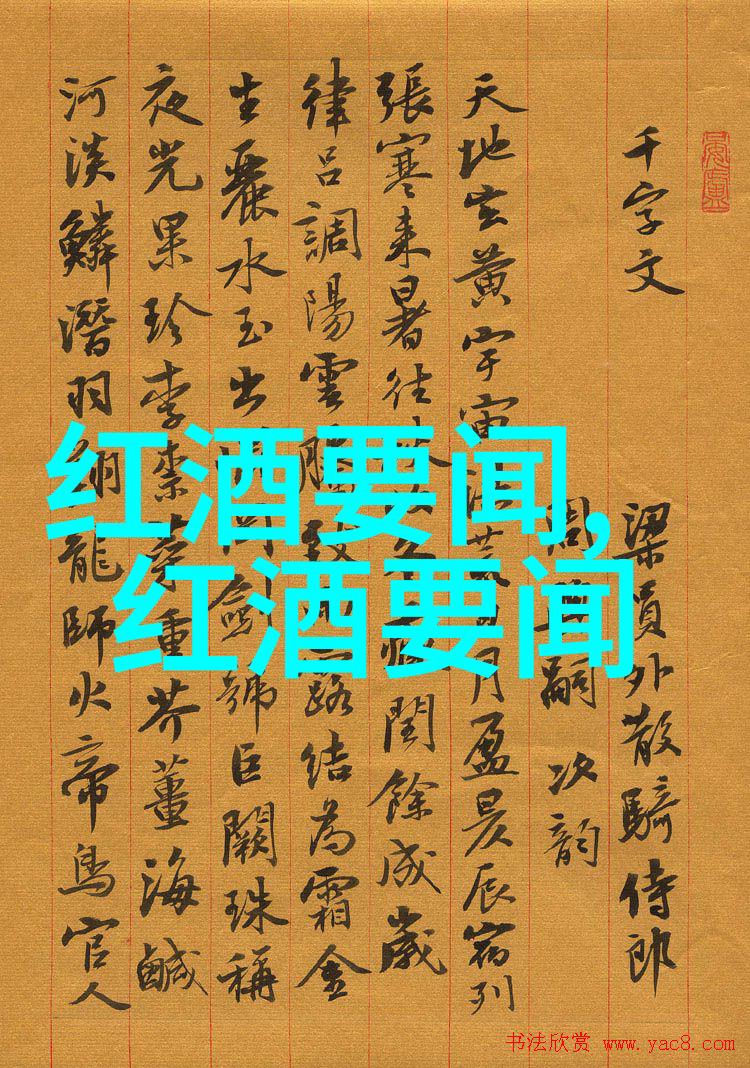 千字文
梁員外散騎侍郎
周嗣次韵
天地玄黃宇宙荒月盈昃辰宿列
張寒來暑往閏餘成歲
律呂調陽雲騰致露結為霜金
生麗水玉出劍號巨闕珠稱
夜光果珍李柰重芥薑海鹹
河淡鱗潛羽翔龍師火帝鳥官人
红酒要闻,
红酒要闻
书法欣赏 www.yac8.com